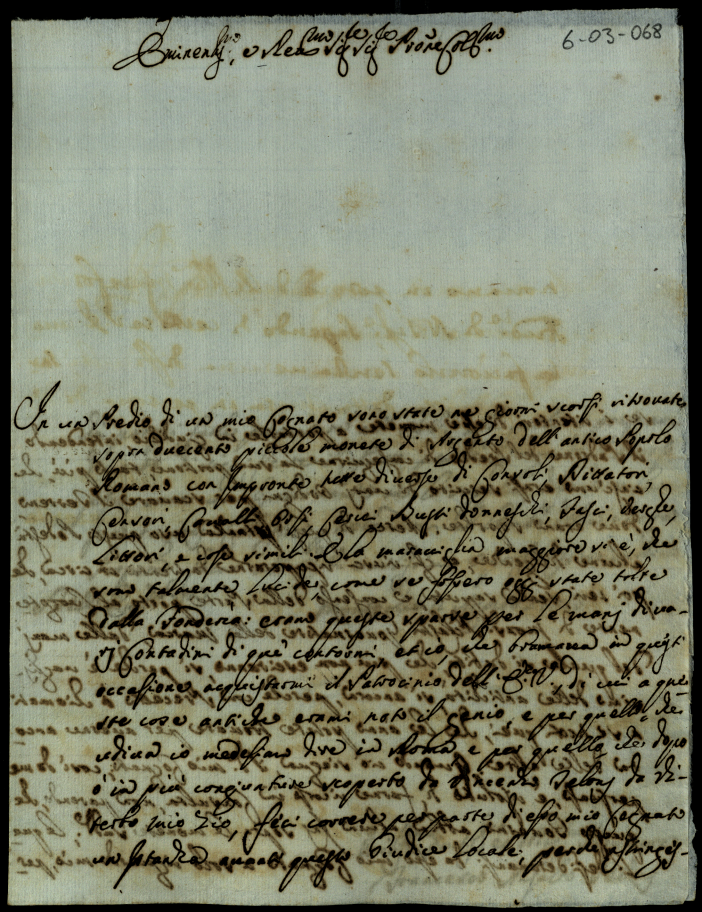 6-03-068
Eminent.mo, e Reu.mo Sig.re Sig.re Prone Col.mo
In un Predio di un mio Cognato sono state ne giorni scorsi ritrovate
sopra duecento piccole monete di Argento dell'antico Popolo
Romano con Impronte tutte diverse di Consoli, Dittatori,
Censori, Cavalli, Bovi, Busti donneschi, Fasci, Verghe,
Littori, e cose simili. E la maraviglia maggiore vi è, che
sono talmente lucide, come se fossero oggi state tolte
dalla Fonderia: erano queste sparse per le manj di va-
rj Contadini di que' contorni, et io, che bramava in questi
occasione acquistarmi il Patrocinio dell' E.V., di cui a que-
ste cose antiche erami noto il genio, e per quello, che
udiva io medesimo dire in Roma e per quello che dopo
ò in più congiunture scoperto da Vincenzo da Vi-
terbo mio Zio, feci correre per parte di esso mio Cognato
un Istanza avanti questo Giudice Locale, perche